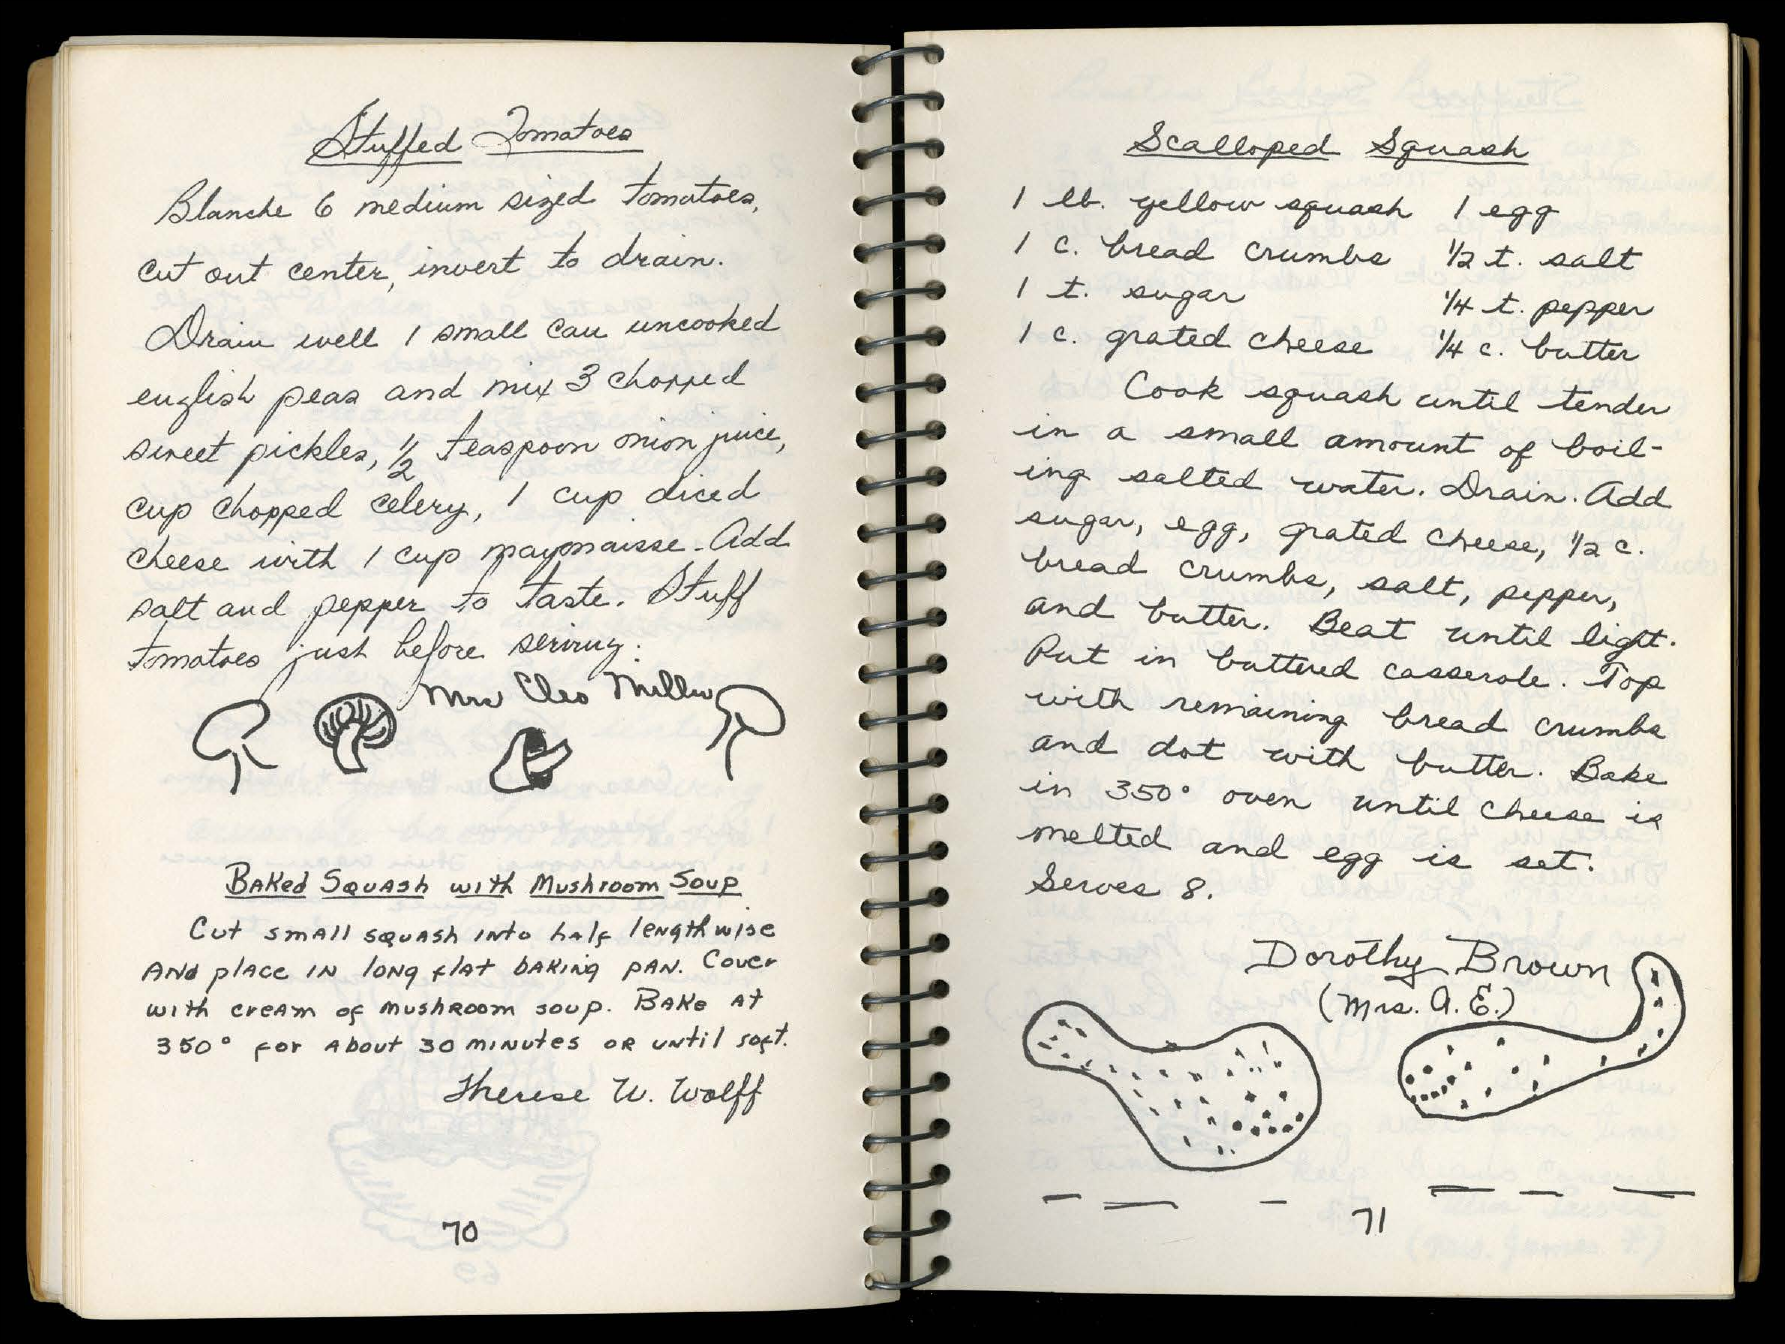 Stuffed Tomatoes
Blanche 6 medium sized tomatoes,
cut out center, invert to drain.
Drain well 1 small can uncooked
english peas and mix 3 chopped
sweet pickles, 1/2 teaspoon onion juice,
cup chopped celery, 1 cup diced
cheese with 1 cup maymaisse. Add
salt and pepper to taste. Stuff
tomatoes just before serving.
Mrs Cleo Miller
Baked Squash with Mushroom Soup
Cut small squash into half lengthwise
and place in long flat baking pan. Cover
with cream of mushroom soup. Bake at
350° for about 30 minutes or until soft.
Therese W. Wolff
70
Scalloped Squash
1 lb. yellow squash 1 egg
1 c. bread crumbs 1/2 t. salt
1 t. sugar 1/4 t. pepper
1 c. grated cheese 1/4 c. butter
Cook squash until tender
in a small amount of boil-
ing salted water. Drain. Add
sugar, egg, grated cheese, 1/2 c.
bread crumbs, salt, pepper,
and butter. Beat until light.
Put in buttered casserole. Top
with remaining bread crumbs
and dot with butter. Bake
in 350° oven until cheese is
melted and egg is set.
Serves 8.
Dorothy Brown
(Mrs. A. E.)
71